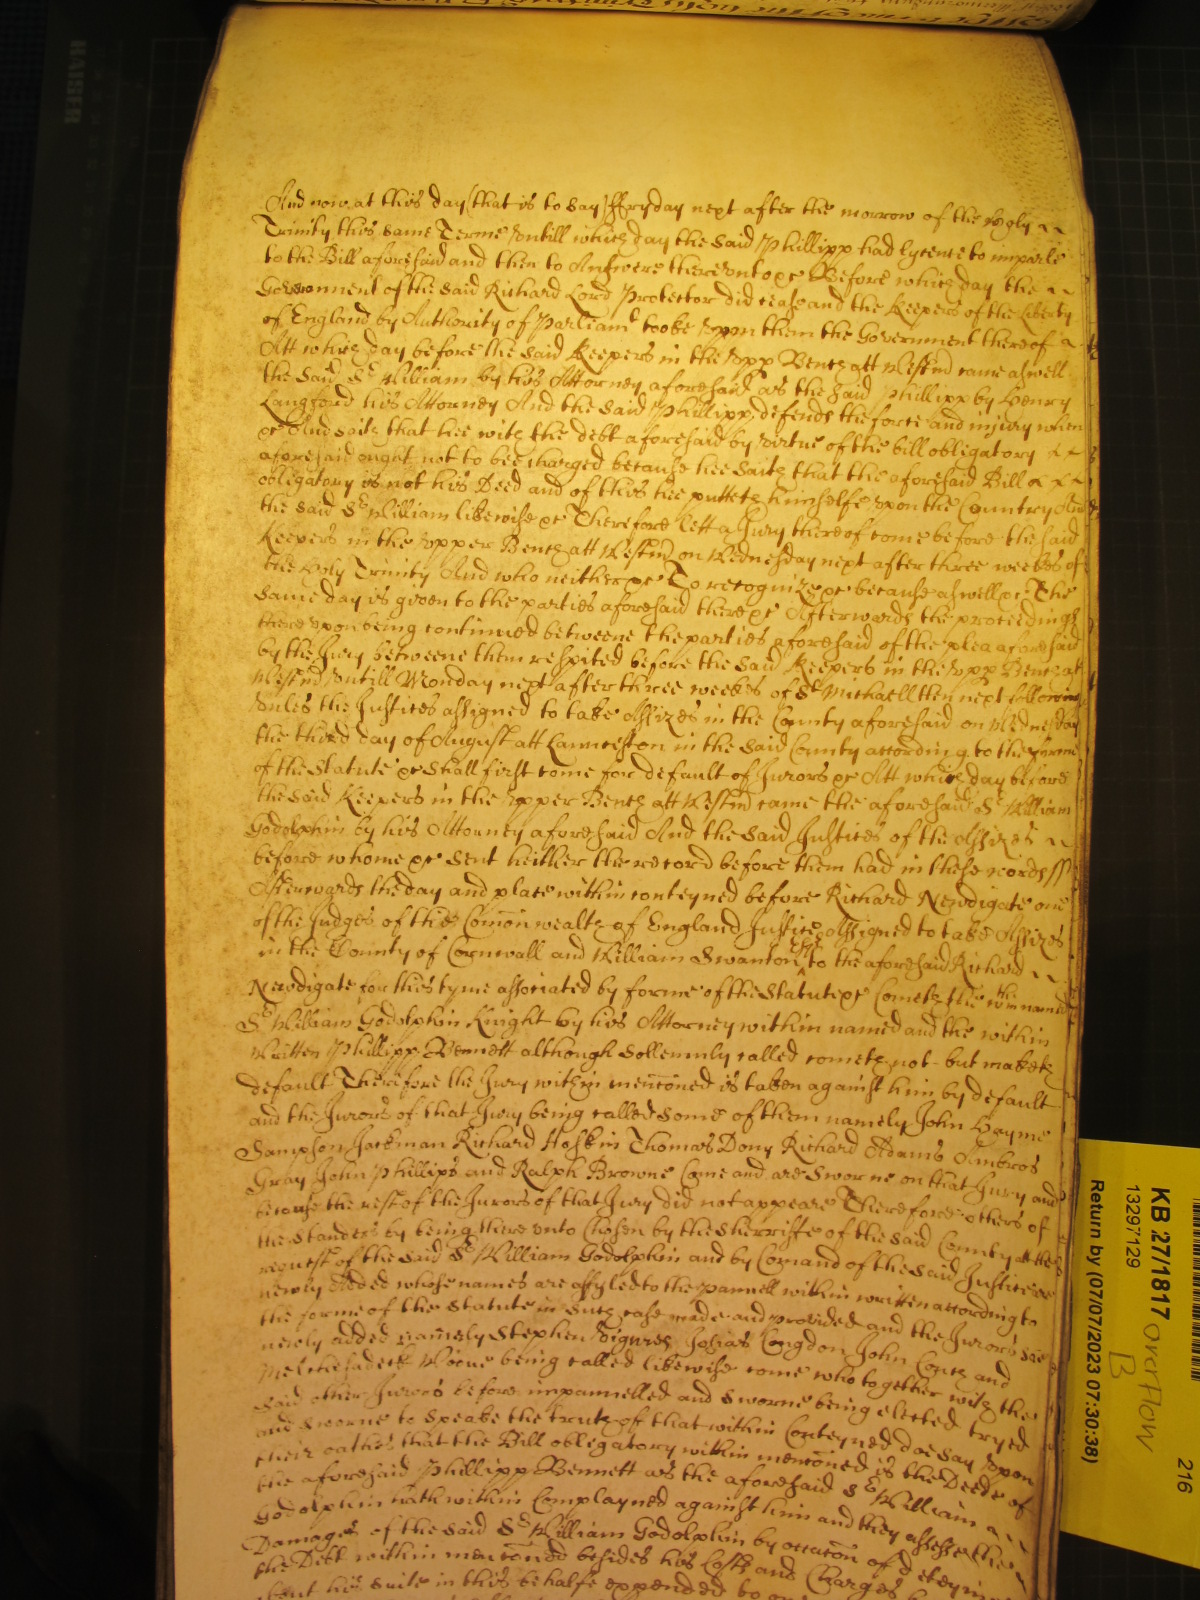 And now at this day (that is to say) ffryday next after the morrow of the Holy
Trinity this same Terme untill which day the said Phillipp had lycence to imparle
to the Bill aforesaid and then to Answere thereunto &c Before which day the
Government of the said Richard Lord Protector did cease and the Keepers of the Liberty
of England by Authority of Parliamt tooke upon them the Government thereof
Att which day before the said Keepers in the upp Bench att Westmr came aswell
the said Sr William by his Attorney aforesaid as the said Phillipp by Henry
Langford his Attorney And the said Phillipp defends the force and injury when
&c And saith that hee with the debt aforesaid by virtue of the bill obligatory
aforesaid ought not to bee charged because hee saith that the aforesaid Bill
obligatory is not his Deed and of this hee putteth himselfe upon the Country And
the said Sr William likewise &c Therefore lett a Jury thereof come before the said
Keepers in the upper Bench att Westmr on Wednesday next after three weekes of
the Holy Trinity And who neither &c To recognize &c because aswell &c The
same day is given to the parties aforesaid there &c Afterwards the proceedings
thereupon being continued betweene the parties aforesaid of the plea aforesaid
by the Jury betweene them respited before the said Keepers in the upp Bench at
Westmr untill Monday next after three weekes of St Michaell then next following
unles the Justices assigned to take Assizes in the County aforesaid on Wednesday
the third day of August att Launceston in the said County according to the forme
of the Statute &c shall first come for default of Jurors &c Att which day before
the said Keepers in the upper Bench att Westmr came the aforesaid Sr William
Godolphin by his Attorney aforesaid And the said Justices of the Assizes
before whome &c sent heither the record before them had in these words ss
Afterwards the day and place within conteyned before Richard Newdigate one
of the Judges of the Comon wealth of England Justice Assigned to take Assizes
in the County of Cornwall and William Swanton Esqr to the aforesaid Richard
Newdigate for this tyme associated by forme of the Statute &c Cometh the within named
Sr William Godolphin Knight by his Attorney within named and the within
written Phillipp Bennett although sollemnly called cometh not but maketh
default Therefore the Jury within mencioned is taken against him by default
and the Jurors of that Jury being called some of them namely John Hayme
Sampson Jackman Richard Hoskin Thomas Dony Richard Adams Ambros
Gray John Phillips and Ralph Browne Come and are sworne on that Jury and
because the rest of the Jurors of that Jury did not appeare Therefore others of
the standers by being thereunto Chosen by the Sherriffe of the said County at the
request of the said Sr William Godolphin and by Comand of the said Justices are
newly Added whose names are affyled to the pannell within written according to
the forme of the Statute in such case made and provided and the Jurors soe
newly added namely Stephen Josias Congdon John Couch and
Melchesadeck being called likewise come who together with the
said other Jurors before impannelled and sworne being elected tryed
and sworne to speake the truth of that within Conteyned doe say upon
their oathes that the Bill obligatory within mencioned is the Deede of
the aforesaid Phillipp Bennett as the aforesaid Sr William
Godolphin hath within Complayned against him and they assesse the
Damages of the said Sr William Godolphin by occacon of deteyning
the Debt within mencioned besides his Costs and Charges
about his suite in this behalfe expended to
KB 27/1817 overflow
B
13297129
Return by (07/07/2023 07:30:38)
216
KAISER